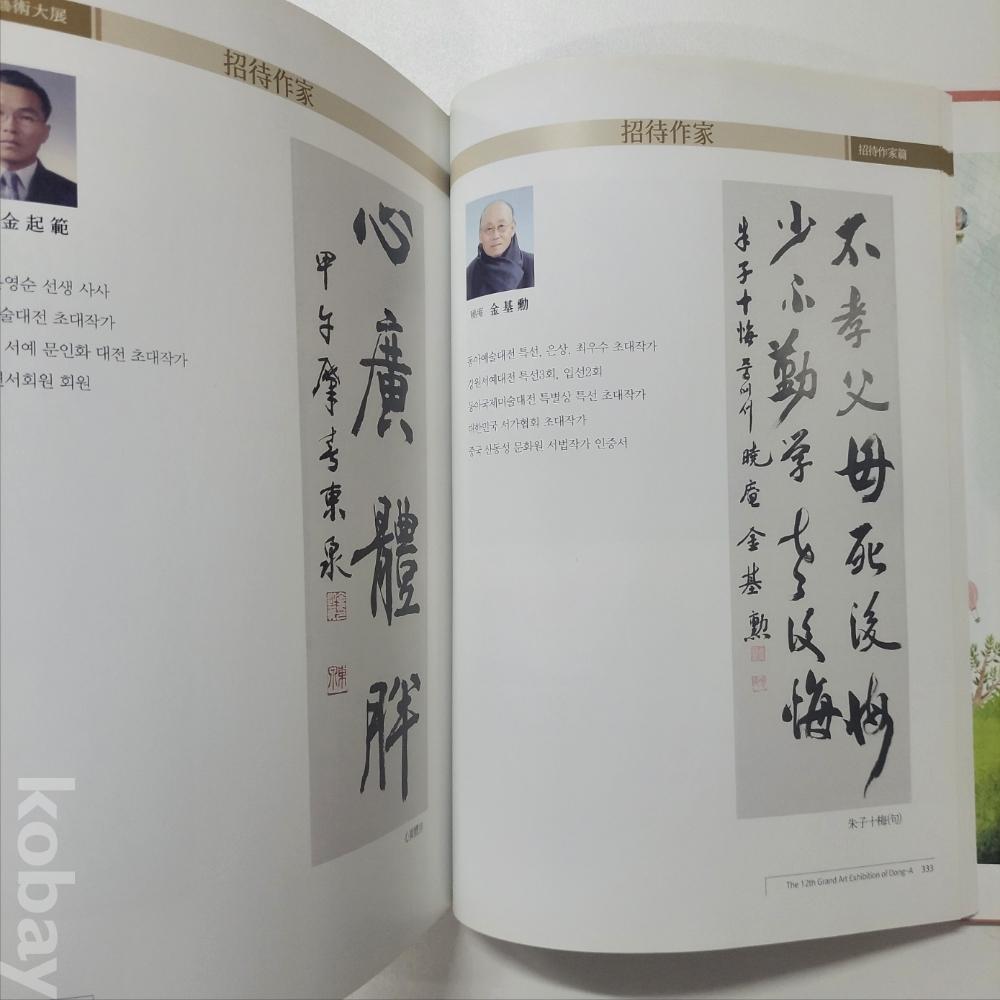 藝術大展
招待作家
金起範
영순 선생 사사
술대전 초대작가
서예 문인화 대전 초대작가
서회원 회원
心廣體胖
甲午肇春東泉
招待作家
招待作家篇
金基勳
동아예술대전 특선, 은상, 최우수 초대작가
강원서예대전 특선3회, 입선2회
동아국제미술대전 특별상 특선 초대작가
대한민국 서가협회 초대작가
중국 산동성 문화원 서법작가 인증서
不孝父母死後悔
少不勤學老後悔
朱子十悔 曉庵 金基勳
朱子十梅(句)
The 12th Grand Art Exhibition of Dong-A 333
kobay